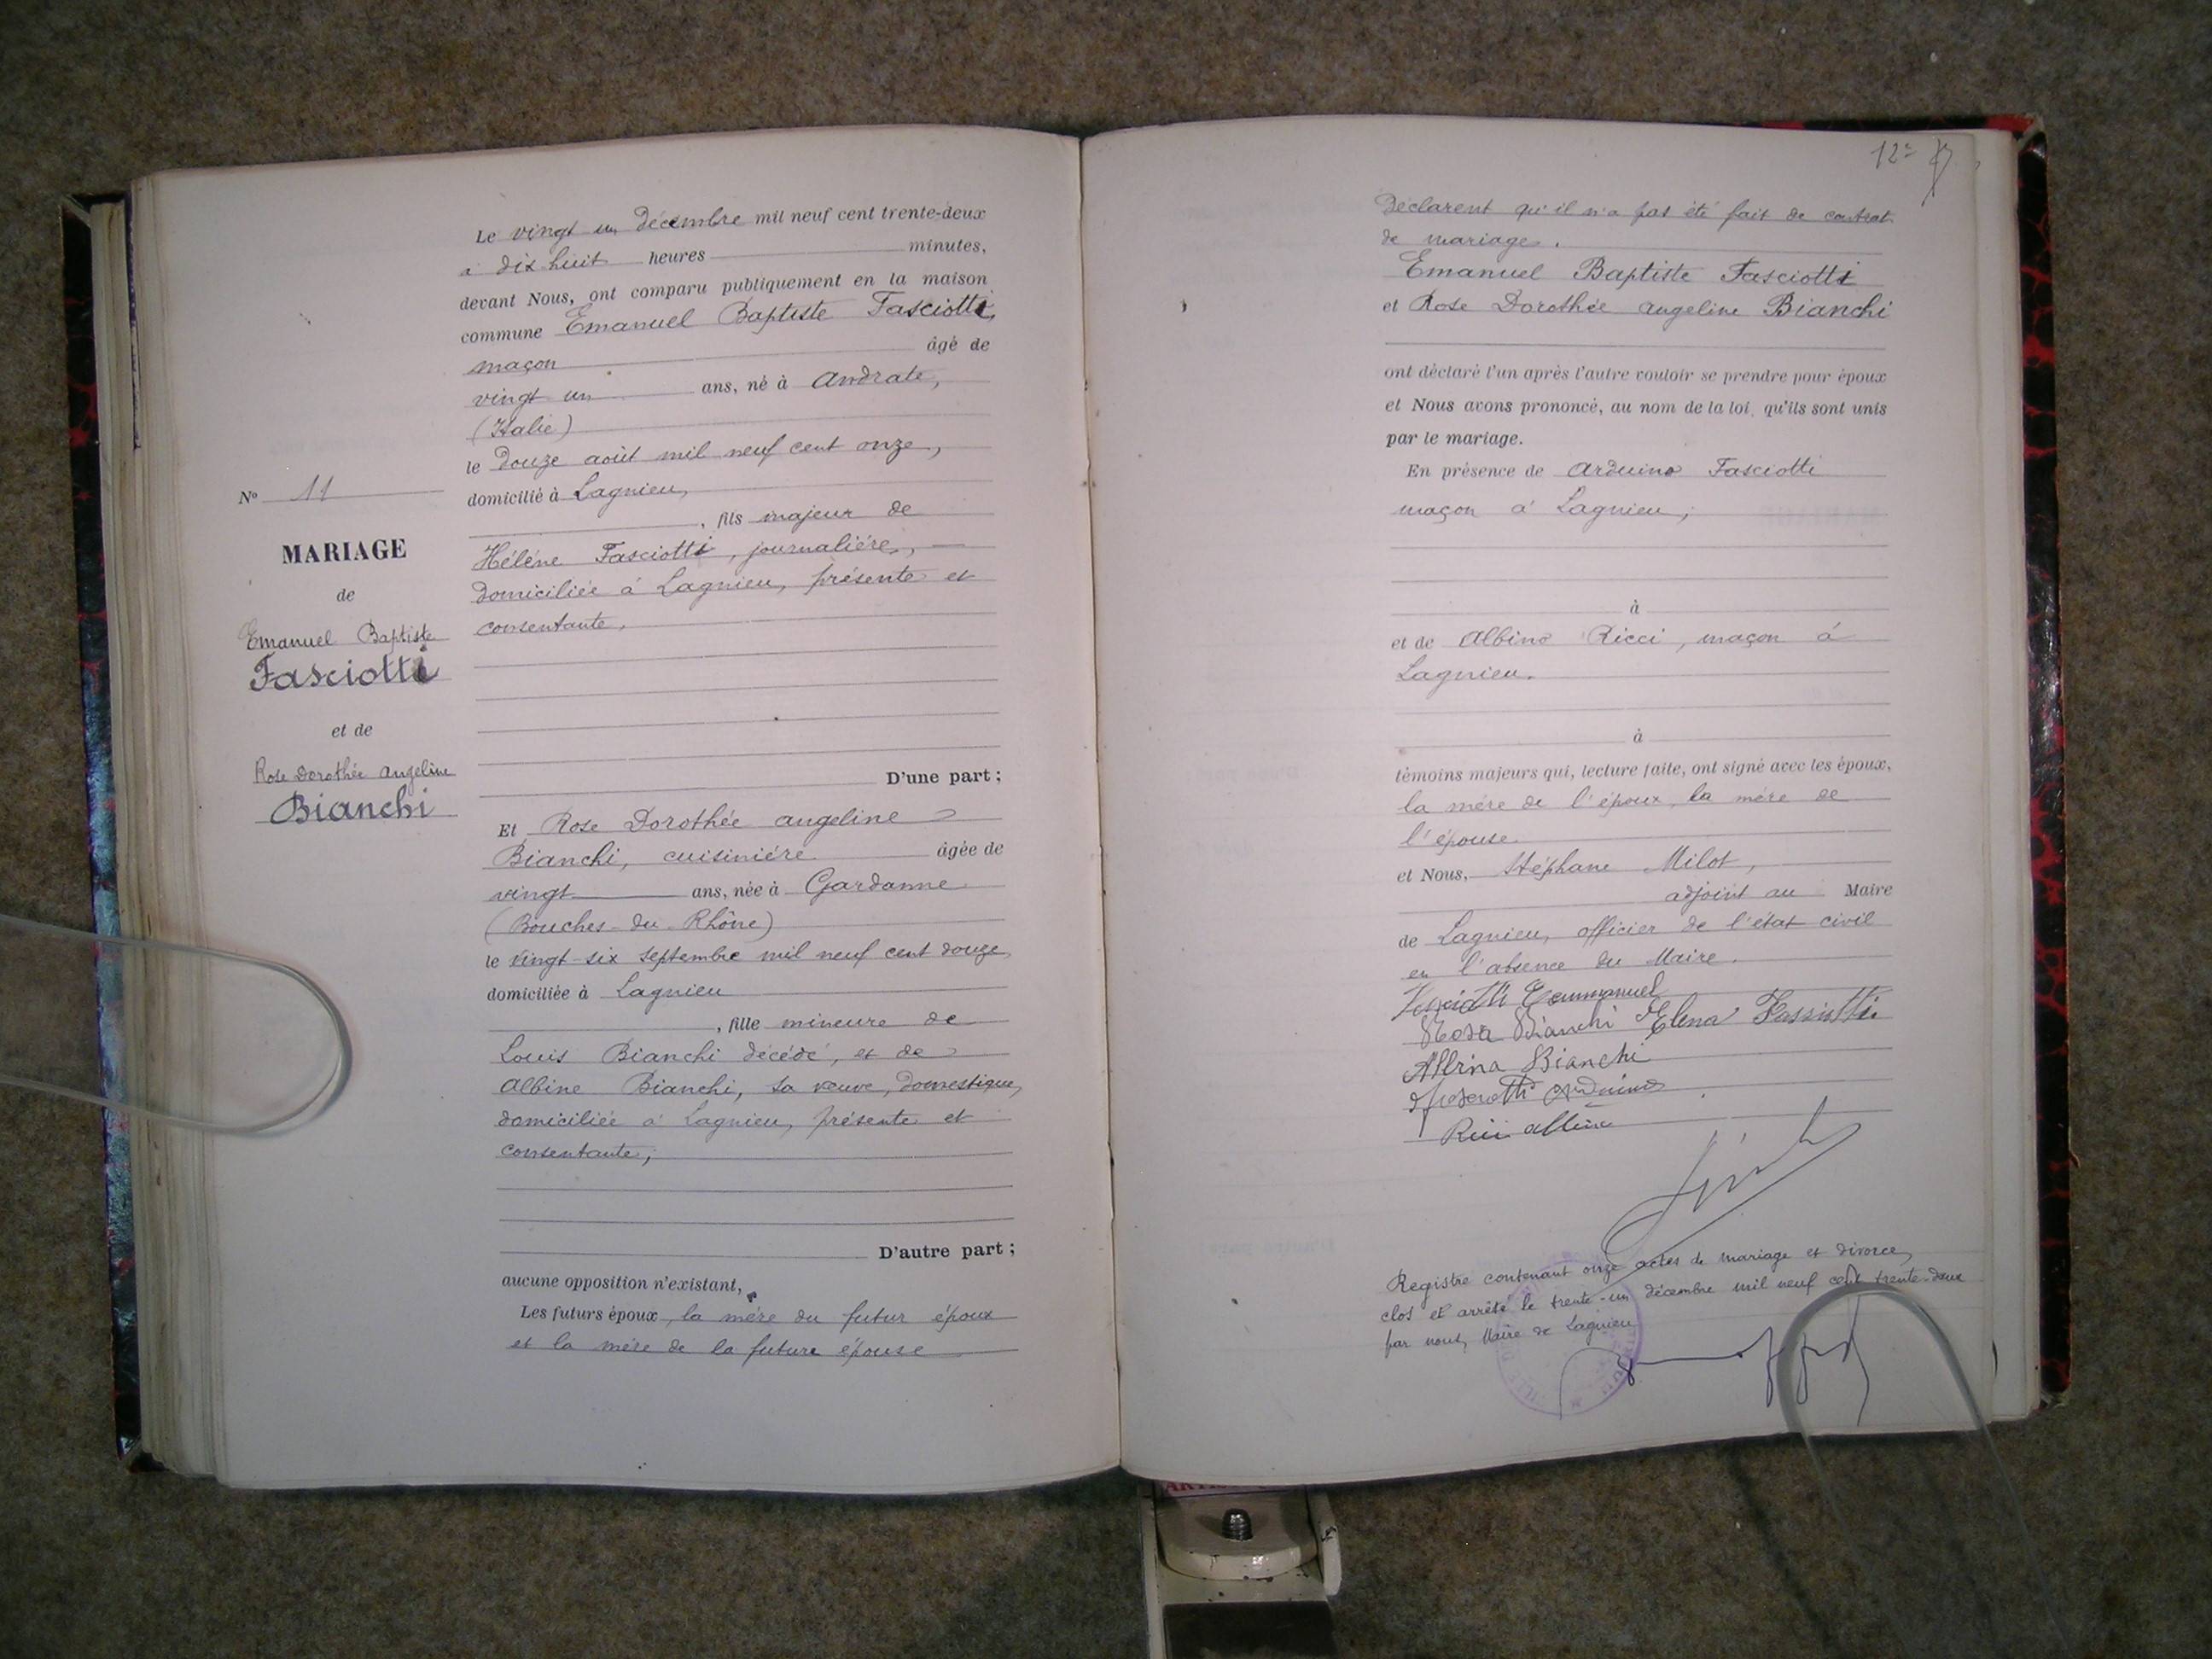 Le vingt un Décembre mil neuf cent trente-deux
à dix huit heures minutes,
devant Nous, ont comparu publiquement en la maison
commune Emanuel Baptiste Fasciotti,
maçon âgé de
vingt un ans, né à Andrate,
(Italie)
le Douze août mil neuf cent onze,
domicilié à Lagnieu,
, fils majeur de
Hélène Fasciotti, journalière,
domiciliée à Lagnieu, présente et
consentante,
D'une part ;
N° 11
MARIAGE
de
Emanuel Baptiste
Fasciotti
et de
Rose Dorothée Angeline
Bianchi
Et Rose Dorothée Angeline
Bianchi, cuisinière âgée de
vingt ans, née à Gardanne
(Bouches-du-Rhône)
le vingt-six septembre mil neuf cent douze,
domiciliée à Lagnieu
, fille mineure de
Louis Bianchi décédé, et de
Albine Bianchi, sa veuve, Domestique,
domiciliée à Lagnieu, présente et
consentante ;
D'autre part ;
aucune opposition n'existant,
Les futurs époux, la mère du futur époux
et la mère de la future épouse
12e
Déclarent qu'il n'a pas été fait de contrat
de mariage.
Emanuel Baptiste Fasciotti
et Rose Dorothée Angeline Bianchi
ont déclaré l'un après l'autre vouloir se prendre pour époux
et Nous avons prononcé, au nom de la loi, qu'ils sont unis
par le mariage.
En présence de Arduino Fasciotti
maçon à Lagnieu ;
à
et de Albino Ricci, maçon à
Lagnieu.
à
témoins majeurs qui, lecture faite, ont signé avec les époux,
la mère de l'époux, la mère de
l'épouse
et Nous, Stéphane Milot,
adjoint au Maire
de Lagnieu, officier de l'état civil
en l'absence du Maire.
Emmanuel
Rosa Bianchi Elena
Albina Bianchi
Arduino
Registre contenant onze actes de mariage et divorce,
clos et arrêté le trente-un décembre mil neuf cent trente-deux
par nous, Maire de Lagnieu